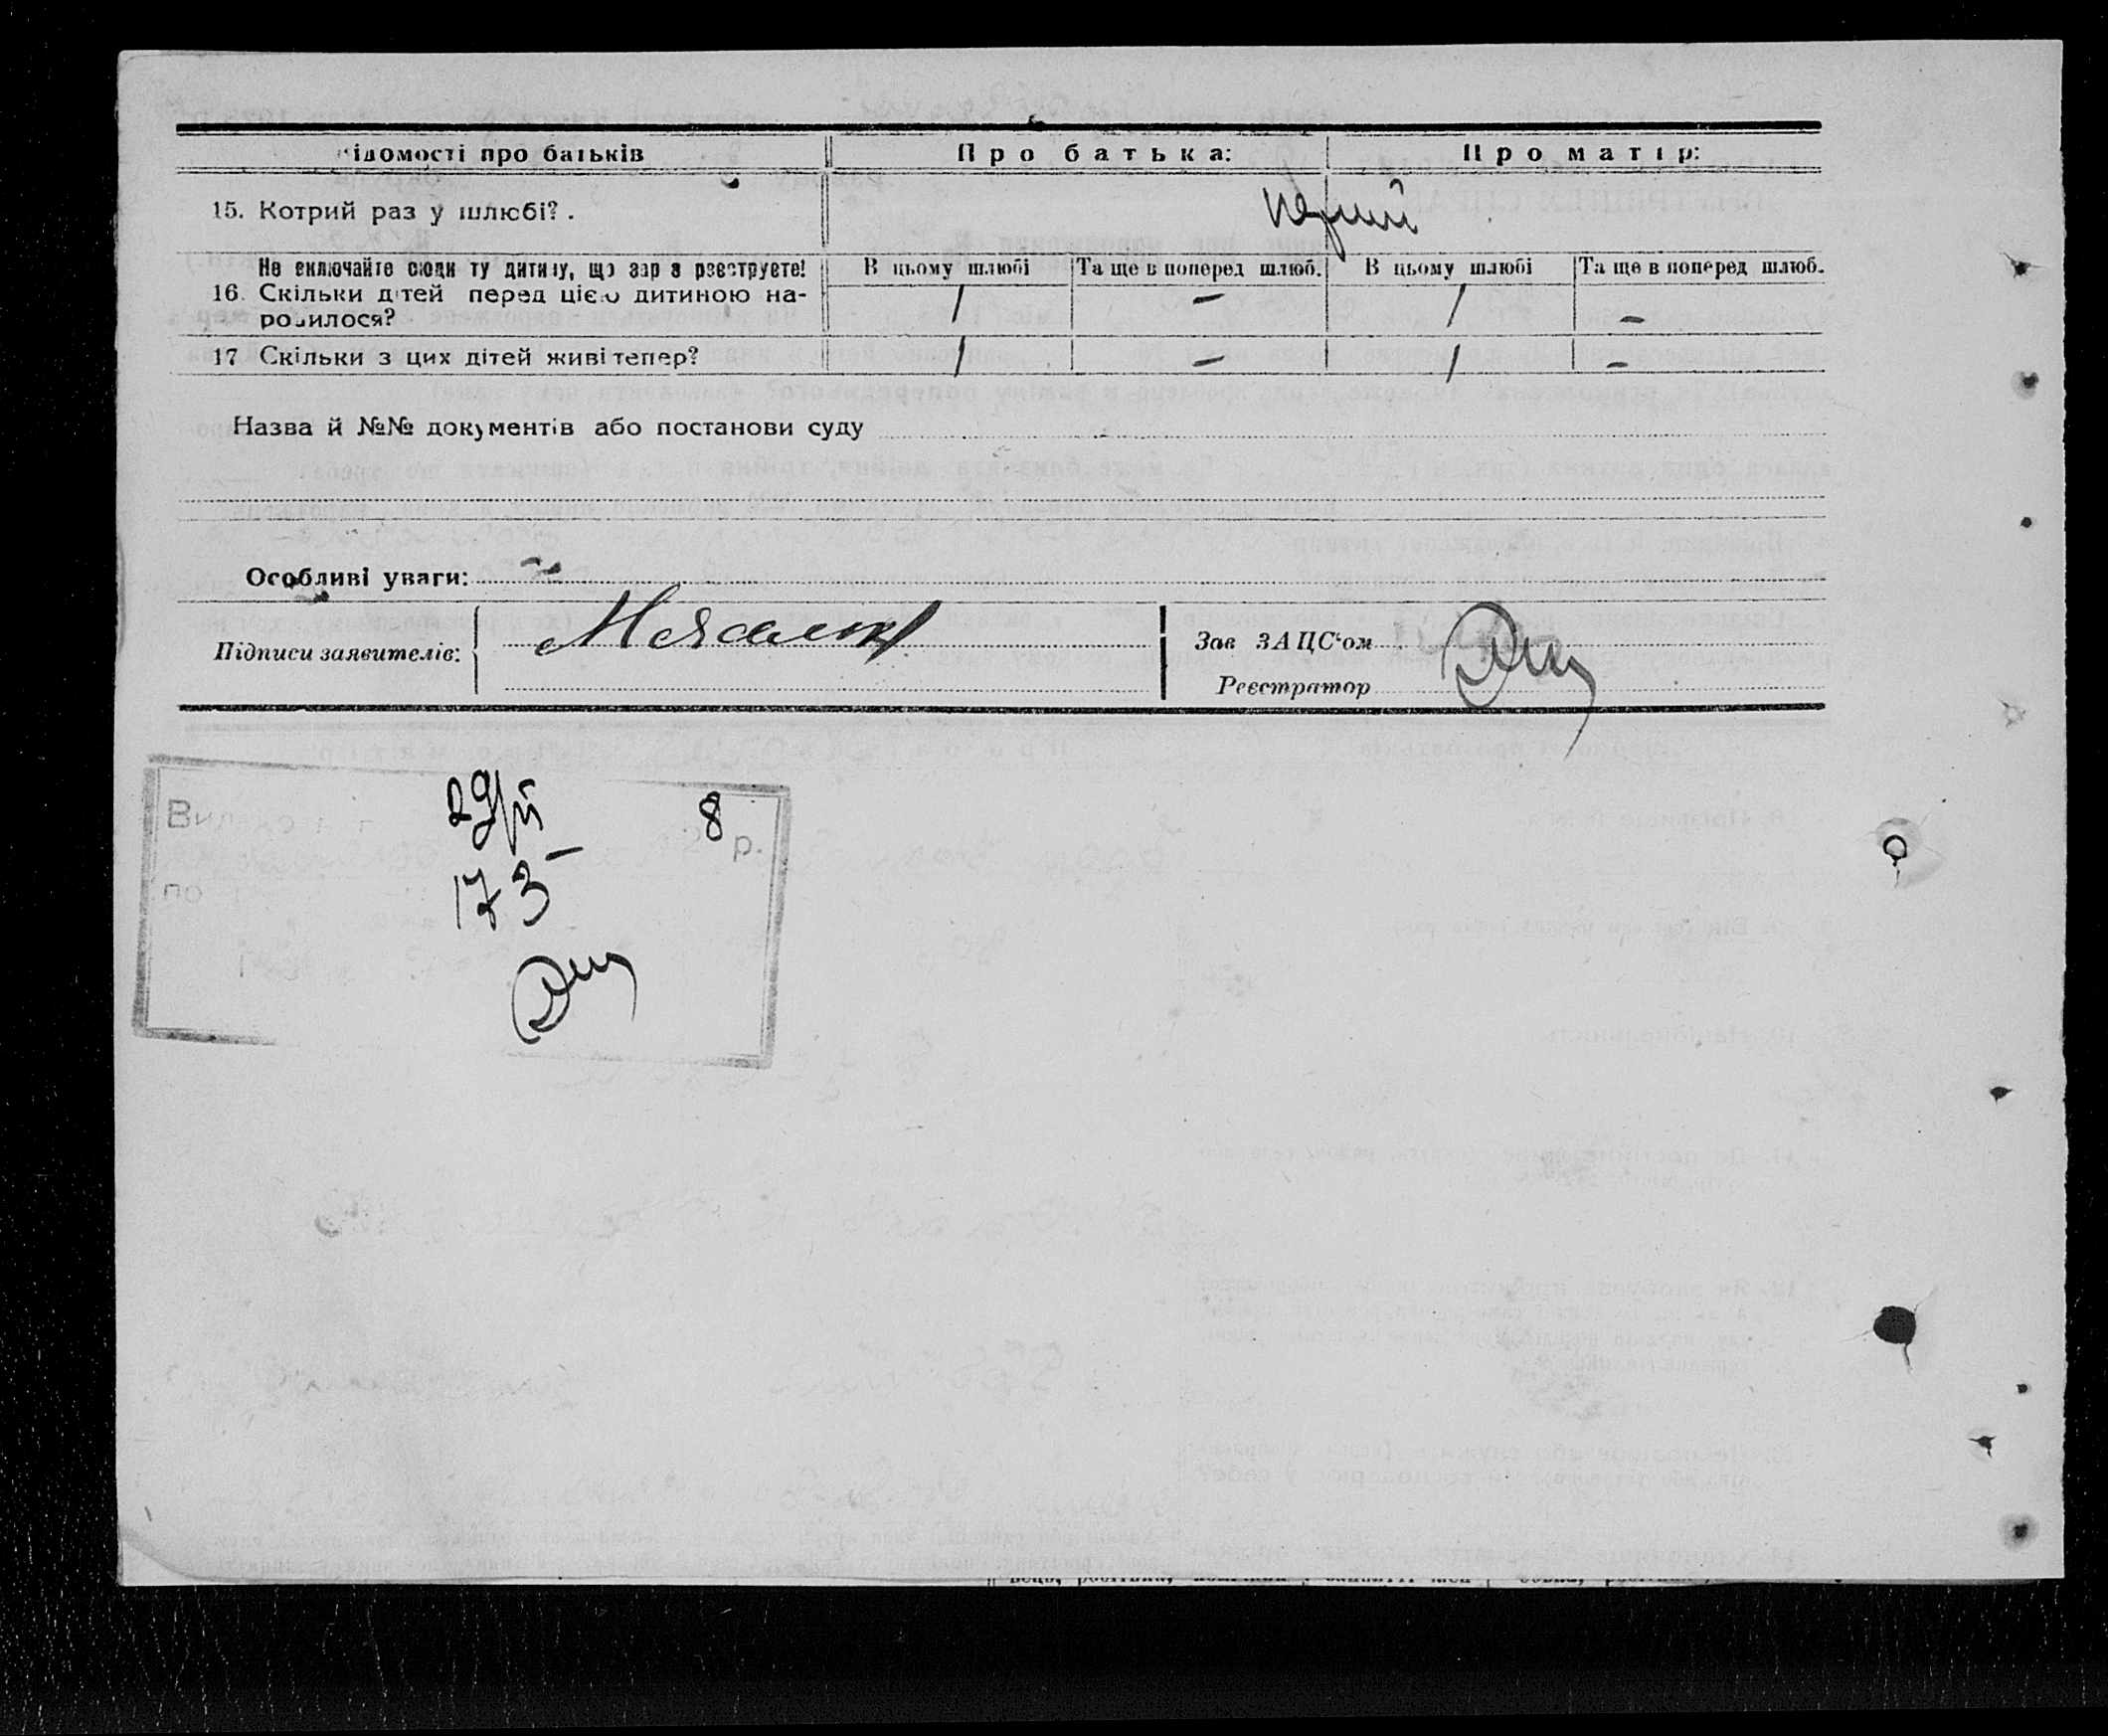 ідомості про батьків Про батька: Про матір:
15. Котрий раз у шлюбі?. перший
Не включайте сюди ту дитину, що зараз реєструєте! В цьому шлюбі Та ще в поперед шлюб. В цьому шлюбі Та ще в поперед шлюб.
16. Скільки дітей перед цією дитиною на-
родилося? 1 – 1 –
17 Скільки з цих дітей живі тепер? 1 – 1 –
Назва й №№ документів або постанови суду
Особливі уваги: –
Підписи заявителів: Зав ЗАЦС'ом
Реєстратор
29/ 8 р.
по 173